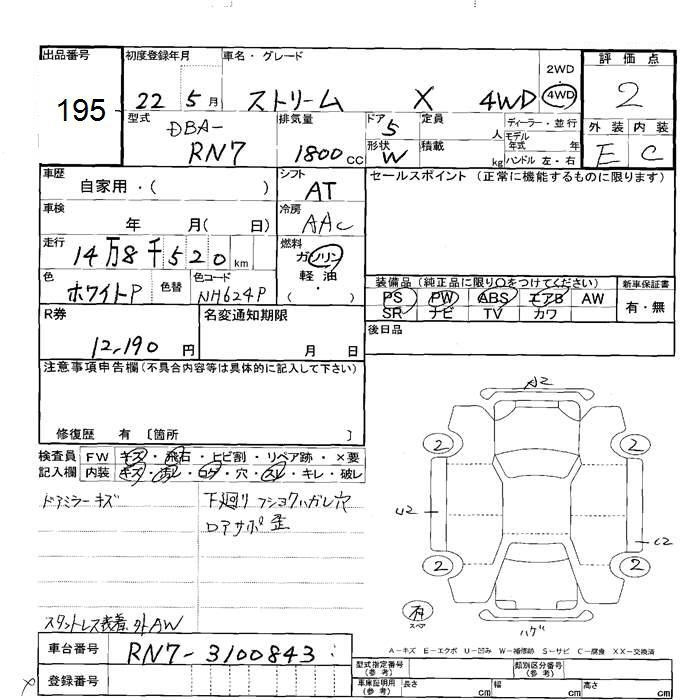 出品番号 初度登録年月 車名・グレード 2WD・4WD 評価点
195 22 5月 ストリーム X 4WD 2
型式 DBA-RN7 排気量 1800cc ドア 5 形状 W 定員 人 積載 kg ディーラー・並行 モデル年式 年 ハンドル 左・右 外装 E 内装 C
車歴 自家用・( ) シフト AT セールスポイント (正常に機能するものに限ります)
車検 年 月( 日) 冷房 AAC
走行 14万8千520km 燃料 ガソリン 軽油 ( )
色 ホワイトP 色替 色コード NH624P 装備品 (純正品に限り○をつけてください) 新車保証書
PS PW ABS エアB AW 有・無
SR ナビ TV カワ
R券 12,190円 名変通知期限 月 日 後日品
注意事項申告欄(不具合内容等は具体的に記入して下さい)
修復歴 有 〔箇所 〕
検査員 FW キズ・飛石・ヒビ割・リペア跡・×要
記入欄 内装 キズ・汚レ・コゲ・穴・スレ・キレ・破レ
ドアミラーキズ 下廻リ フショクハガレ穴
ロアサポ歪
スタットレス装着、外AW
A2
2 2
U2 C2
2 2
有 スペア ハゲ
A-キズ E-エクボ U-凹み W-補修跡 S-サビ C-腐食 XX-交換済
車台番号 RN7-3100843
登録番号
型式指定番号(参考) 類別区分番号(参考)
車庫証明用(参考) 長さ cm 幅 cm 高さ cm